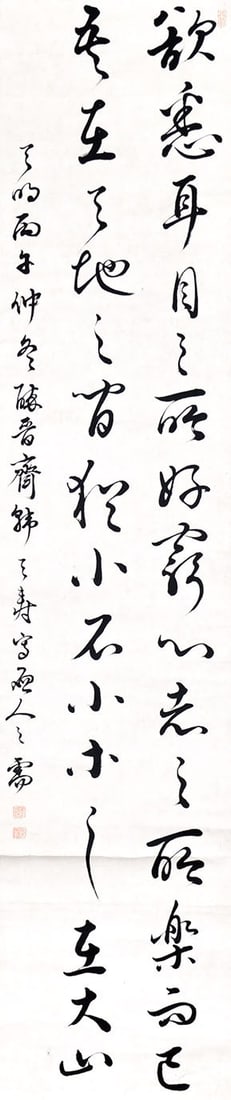 欲悉耳目之所好窮心志之所樂而已
吾在天地之間猶小石小木之在大山
天明丙午仲冬醉晋齋韓天壽寫應人之需